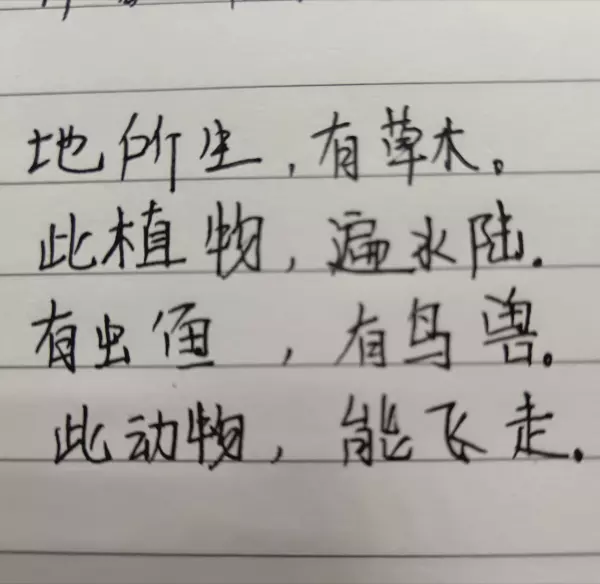 地所生，有草木。
此植物，遍水陆。
有虫鱼，有鸟兽。
此动物，能飞走。